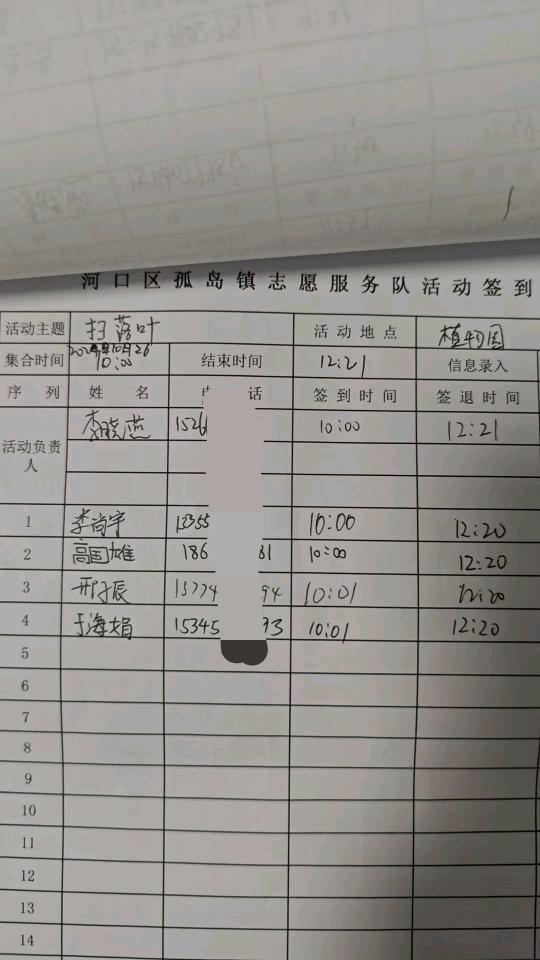 河口区孤岛镇志愿服务队活动签到
活动主题 扫落叶 活动地点 植物园
集合时间 10:00 结束时间 12:21 信息录入
序列 姓名 电话 签到时间 签退时间
活动负责人 李晓燕 1526 10:00 12:21
1 李尚宇 13355 10:00 12:20
2 高国雄 186 81 10:00 12:20
3 邢子辰 13774 94 10:01 12:20
4 于海娟 15345 93 10:01 12:20
5
6
7
8
9
10
11
12
13
14